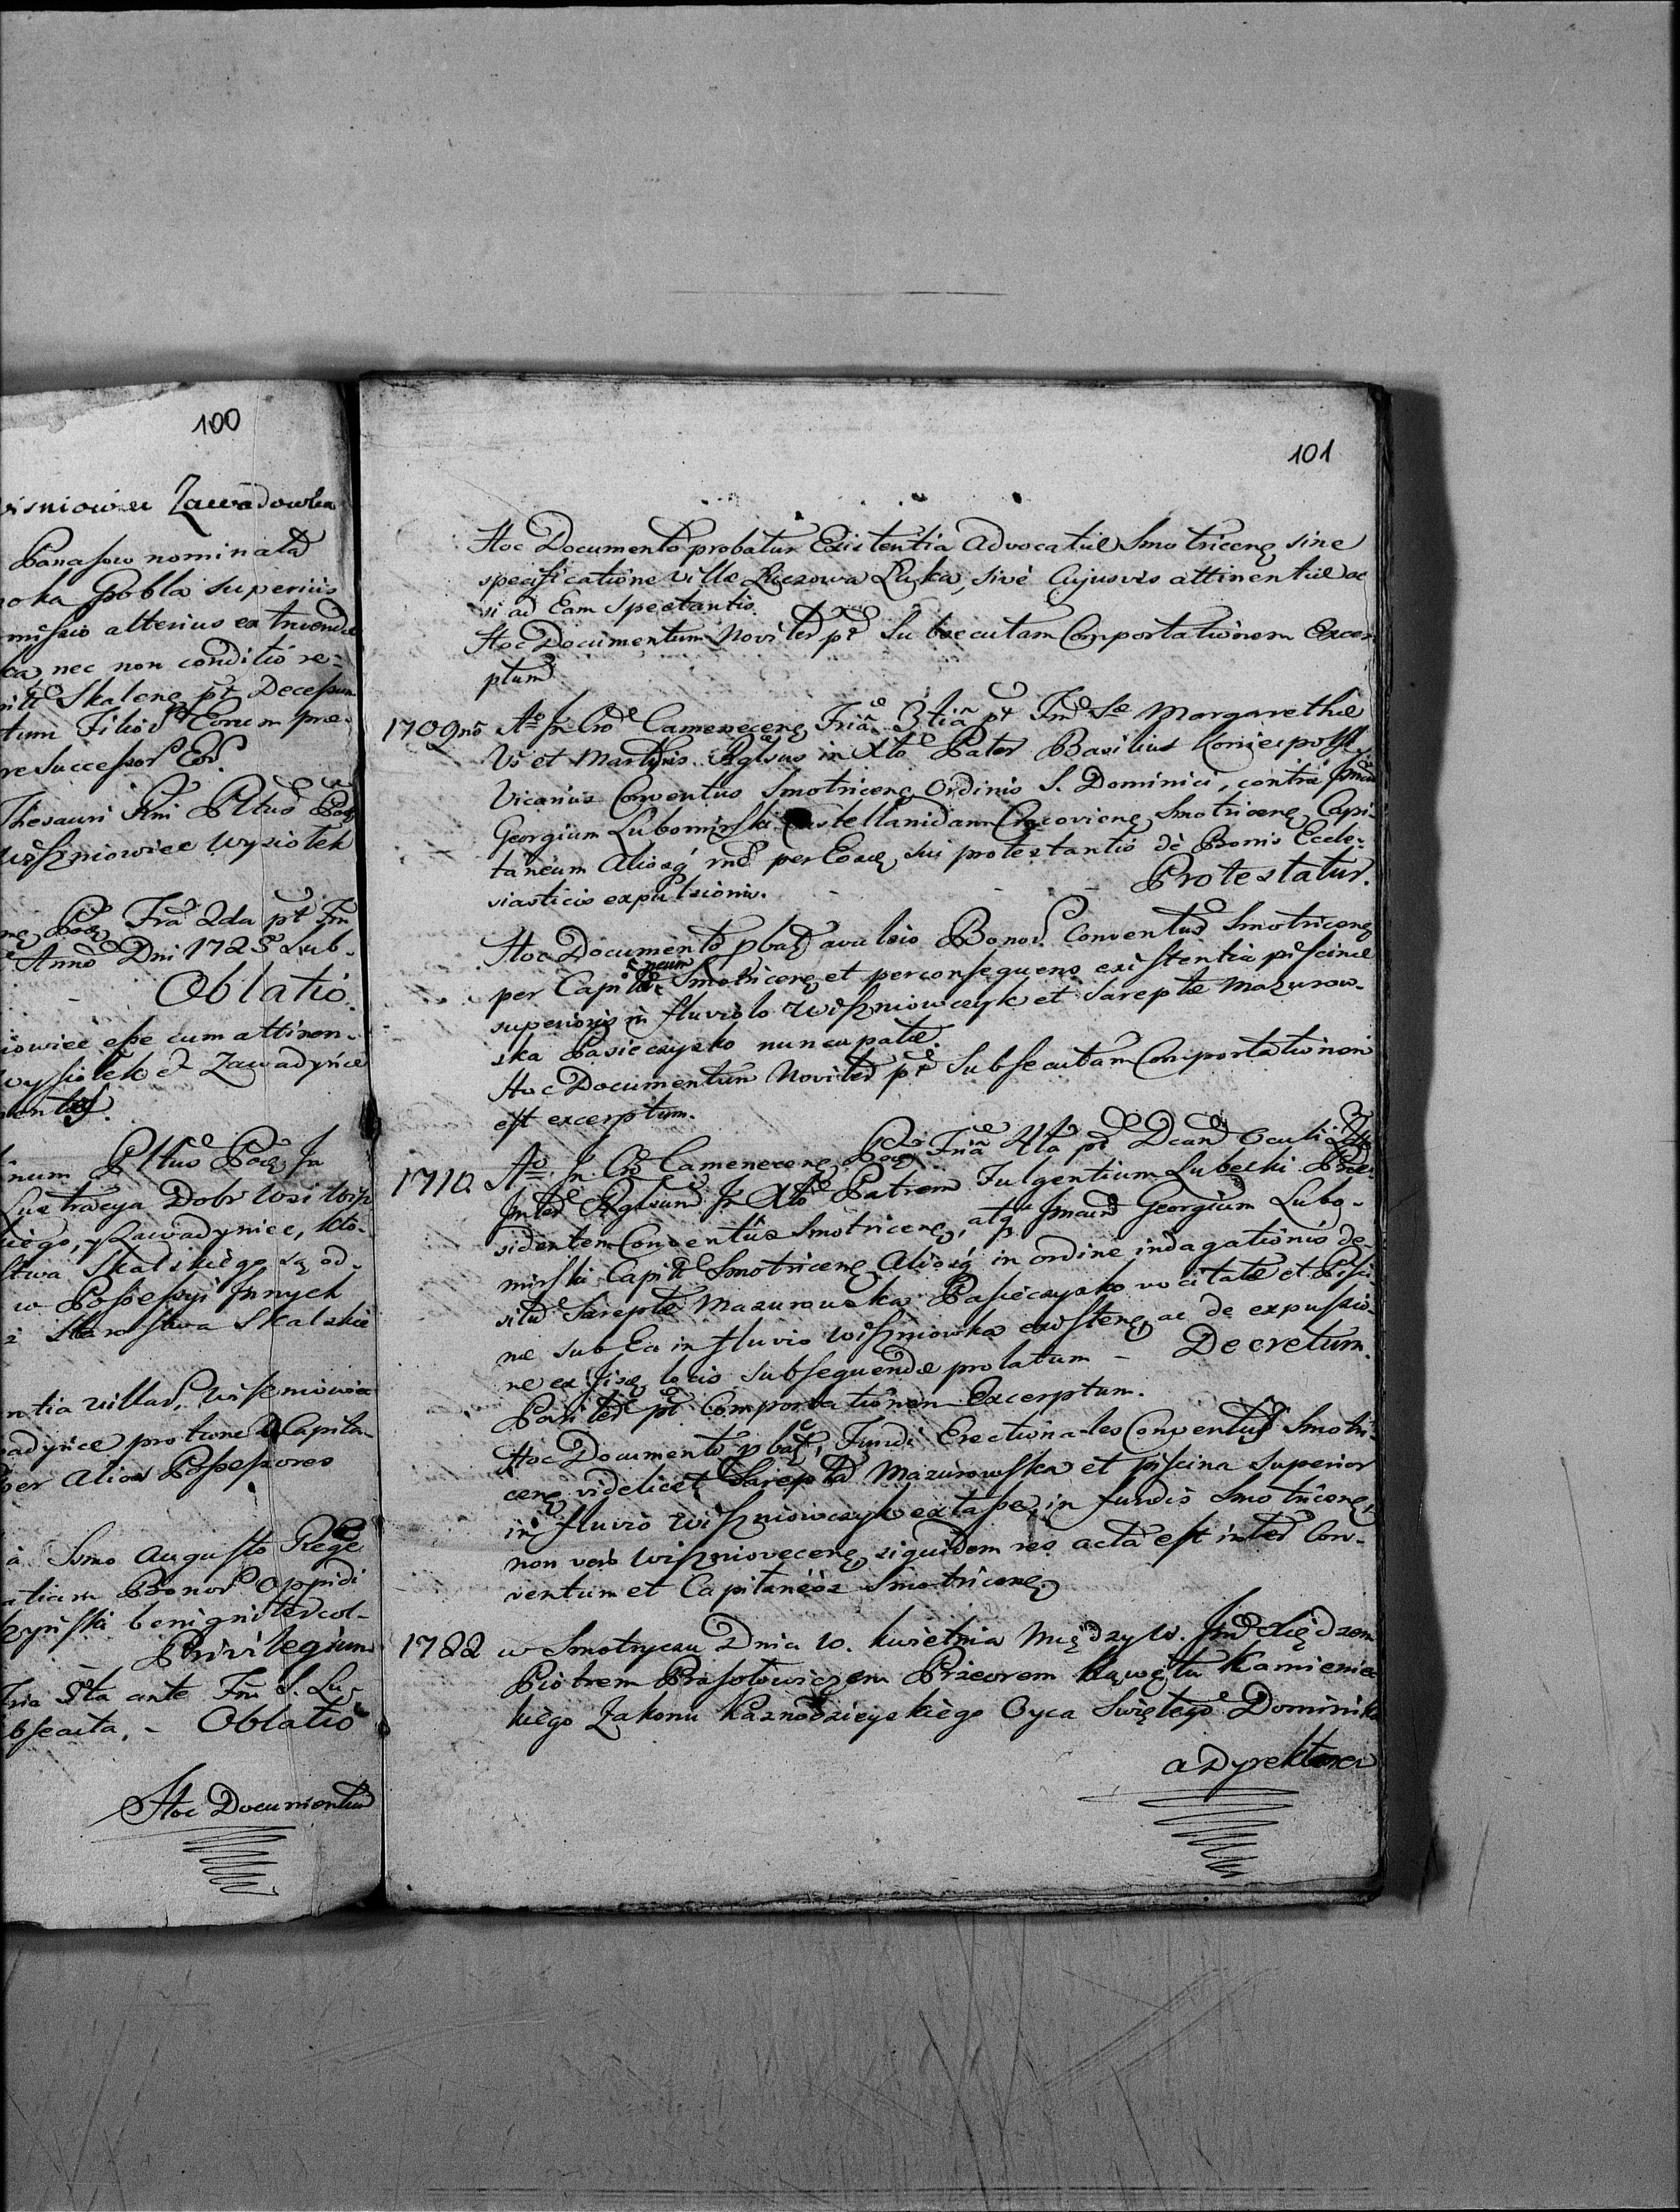 100
Zawadowka
Panasow nominata
Gobla superius
missio alterius extruenda
ca, nec non conditio re-
Skalenę pt Decessum
tum Filior Eorum pre-
re Successor Eor.
Thesauri Rni Pltus
Wiszniowiec Wysiotek
Fria 2da pt Fm
Anno Dni 1725 sub-
Oblatio.
iowiec esse cum attinen-
Wysiotek et Zawadynce
inum Pltus Pod In
Lustracya Dobr Wsi Wisz
kiego, y Zawadyniec, kto-
stwa Skalskiego są od-
w Possessyi Innych
z Starostwa Skalskie
ntia villar. Wiszniowiec
adynce pro tunc a Capita-
per Alios Possessores
à Smo Augusto Rege
Bonor Oppidi
benigniter col-
Privilegium
Fria 5ta ante Fm S. Lu-
bsecuta, - Oblatio
Hoc Documentum
101
Hoc Documento probatur Existentia Advocatiæ Smotricenę sine
specificatione villæ Luczowa Luka, sivè Cujusvis attinentiæ ac
si ad Eam Spectantis.
Hoc Documentum Noviter pt Subsecutam Comportationem Excer-
ptum
1709nó Ao In Cro Camenecenę Fria 3tia pt Fm Sæ Margarethæ
Vs et Martiris Rglsus in Xto Pater Basilius Koniecpolski
Vicarius Conventus Smotricenę Ordinis S. Dominici, contra
Georgium Lubomirski Castellanidam Cracovienę Smotricenę Capi-
taneum Aliosq́ rnd per Eosdę sui protestantis dè Bonis Eccle-
siasticis expulsionis. - - - Protestatur.
Hoc Documento pbatę avulsio Bonor Conventus Smotricenę
per Capitaneum Smotricenę et per consequens existentia piscinæ
superioris in fluviolo Wiszniowczyk et Sareptæ Mazurow-
ska Pasieczysko nuncupatæ.
Hoc Documentum Noviter pt Subsecutam Comportationem
est excerptum.
1710. Ao. In Cro Camenecenę Pod Fria 4ta pt Dcam Oculi
Inter Rglsum In Xto Patrem Fulgentium Lubecki Præ-
sidentem Conventus Smotricenę, atq́ Georgium Lubo-
mirski Capit Smotricenę Aliosq́ in ordine indagationis de
situ Sareptæ Mazurowska Pasieczysko vocitatæ et Pisci-
næ sub Ea in fluvio Wiszniowka existenę, ac de expulsio-
ne ex Iisdę locis subsequendæ prolatum - Decretum.
Pariter pt Comportationem Excerptum.
Hoc Documento pbatę, Fundi Erectionales Conventus Smotri-
cenę videlicet Sarepta Mazurowska et piscina superior
in fluvio Wiszniowczyk extasse, in fundis Smotricenę
non vero Wisznioveceneę, siquidem res acta est inter Con-
ventum et Capitaneos Smotricenę.
1722 w Smotryczu Dnia 10. kwietnia Między W. Jmd Xiędzem
Piotrem Prasolowiczem Przeorem Kąwętu Kamienie-
kiego Zakonu Kaznodzieyskiego Oyca Świętego Dominika
a Dyrektora